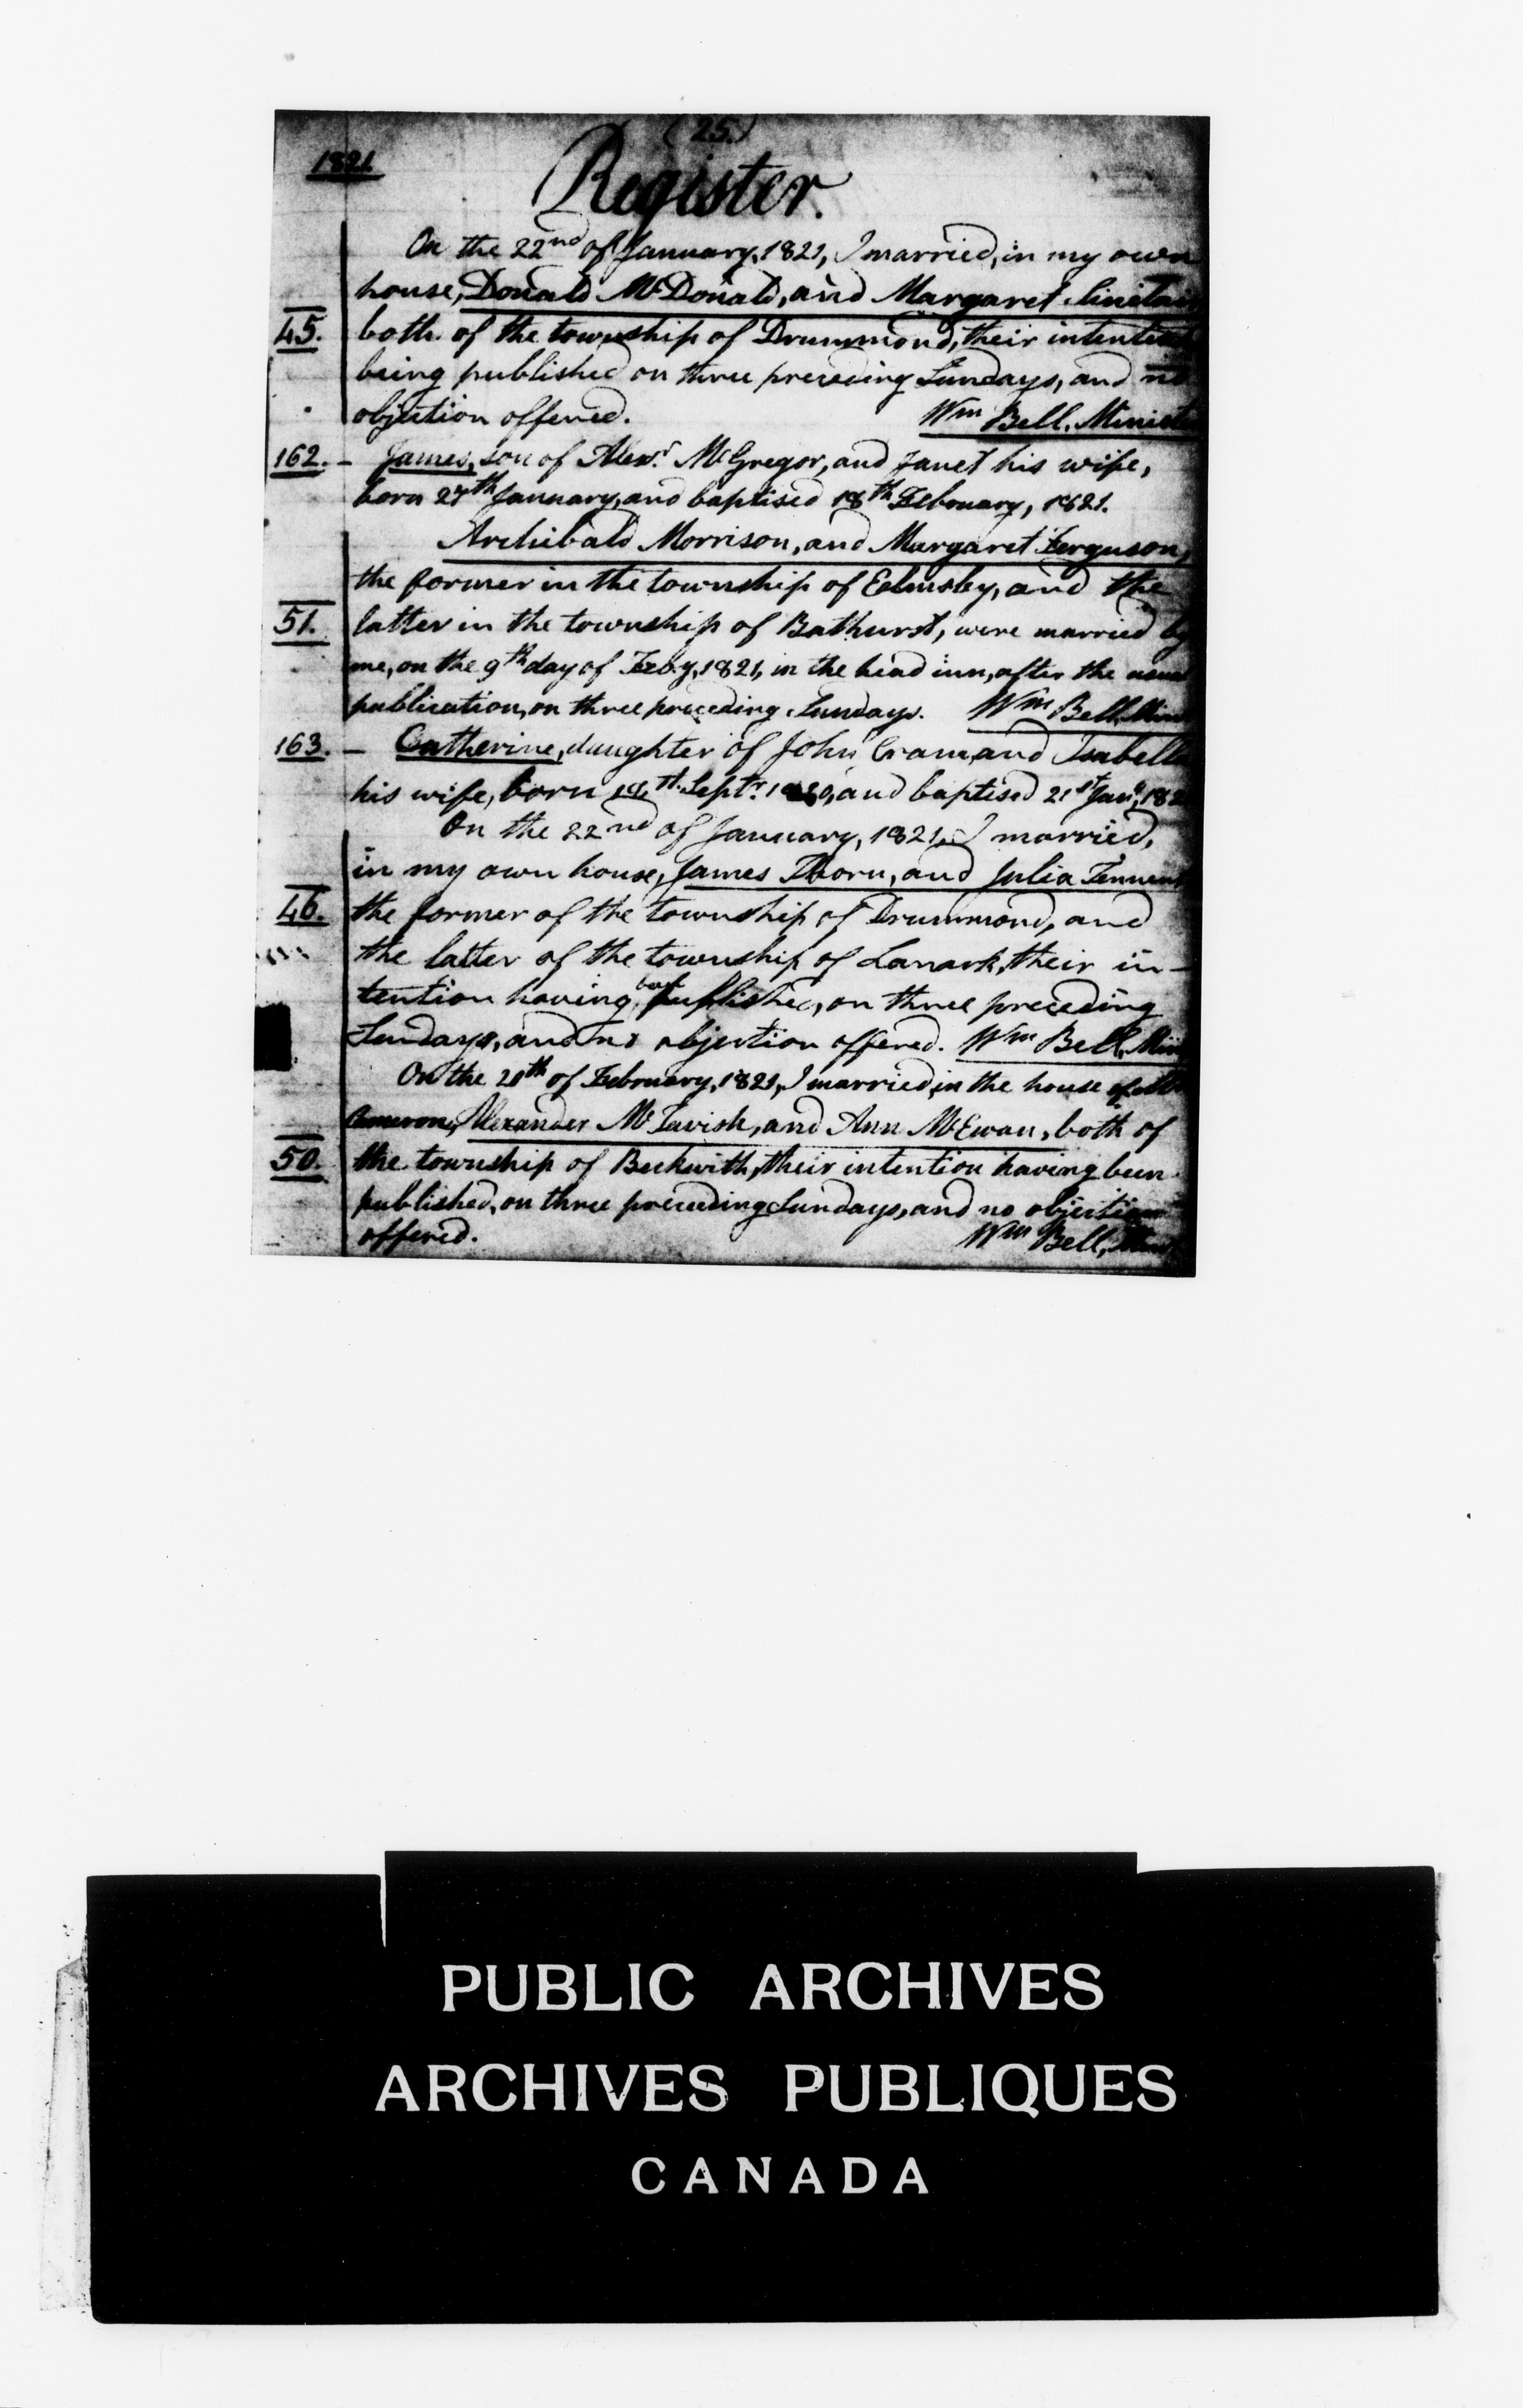 (25.)
1821.
Register.
On the 22nd of January, 1821, I married, in my own
house, Donald McDonald, and Margaret Sinclair
45. both of the township of Drummond, their intention
being published on three preceding Sundays, and no
objection offered. Wm Bell, Minister
162. – James, son of Alexr. McGregor, and Janet his wife,
born 27th January, and baptised 18th February, 1821.
Archibald Morrison, and Margaret Ferguson,
the former in the township of Elmsley, and the
51. latter in the township of Bathurst, were married by
me, on the 9th day of Feby, 1821, in the head inn, after the usual
publication, on three preceding Sundays. Wm Bell, Min
163. – Catherine, daughter of John Cram, and Isabella
his wife, born 18th Septr. 1820, and baptised 21st Jany, 182
On the 22nd of January, 1821, I married,
in my own house, James Thorn, and Julia
46. the former of the township of Drummond, and
the latter of the township of Lanark, their in-
tention having been published, on three preceding
Sundays, and no objection offered. Wm Bell, Min
On the 20th of February, 1821, I married, in the house of Mr
Cameron, Alexander McTavish, and Ann McEwan, both of
50. the township of Beckwith, their intention having been
published, on three preceding Sundays, and no objection
offered. Wm Bell, Min
PUBLIC ARCHIVES
ARCHIVES PUBLIQUES
CANADA